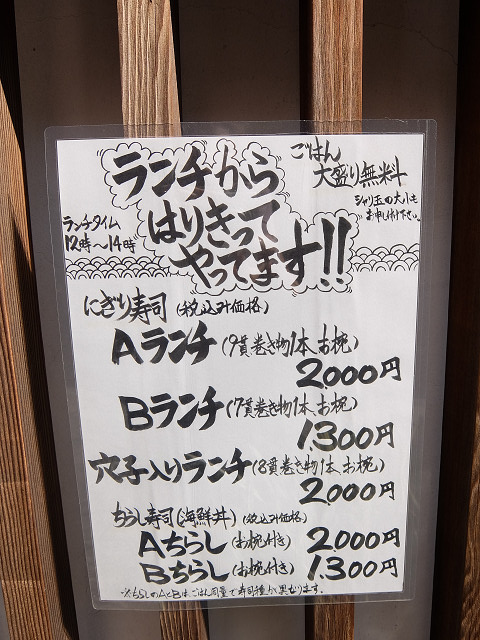 ランチから
はりきって
やってます!!
ごはん
大盛り無料
シャリ玉の大小も
お申し付け下さい。
ランチタイム
12時〜14時
にぎり寿司(税込み価格)
Aランチ(9貫巻き物1本、お椀)
2000円
Bランチ(7貫巻き物1本、お椀)
1.300円
穴子入りランチ(8貫巻き物1本、お椀)
2.000円
ちらし寿司(海鮮丼)(税込み価格)
Aちらし(お椀付き) 2.000円
Bちらし(お椀付き) 1.300円
※ちらしのAとBは、ごはん同量で寿司種が異なります。